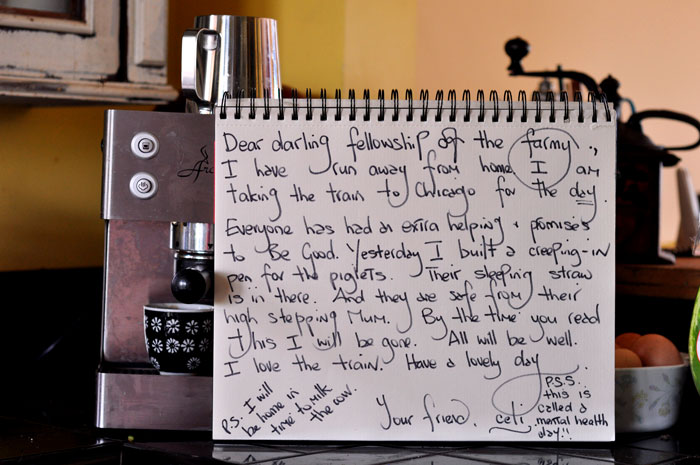 Dear darling fellowship of the farmy.,
I have run away from home. I am
taking the train to Chicago for the day.
Everyone has had an extra helping + promises
to Be Good. Yesterday I built a creeping-in
pen for the piglets. Their sleeping straw
is in there. And they are safe from their
high stepping Mum. By the time you read
this I will be gone. All will be well.
I love the train. Have a lovely day.
P.S. I will
be home in
time to milk
the cow.
Your friend. celi
P.S.S.
this is
called a
mental health
day!!